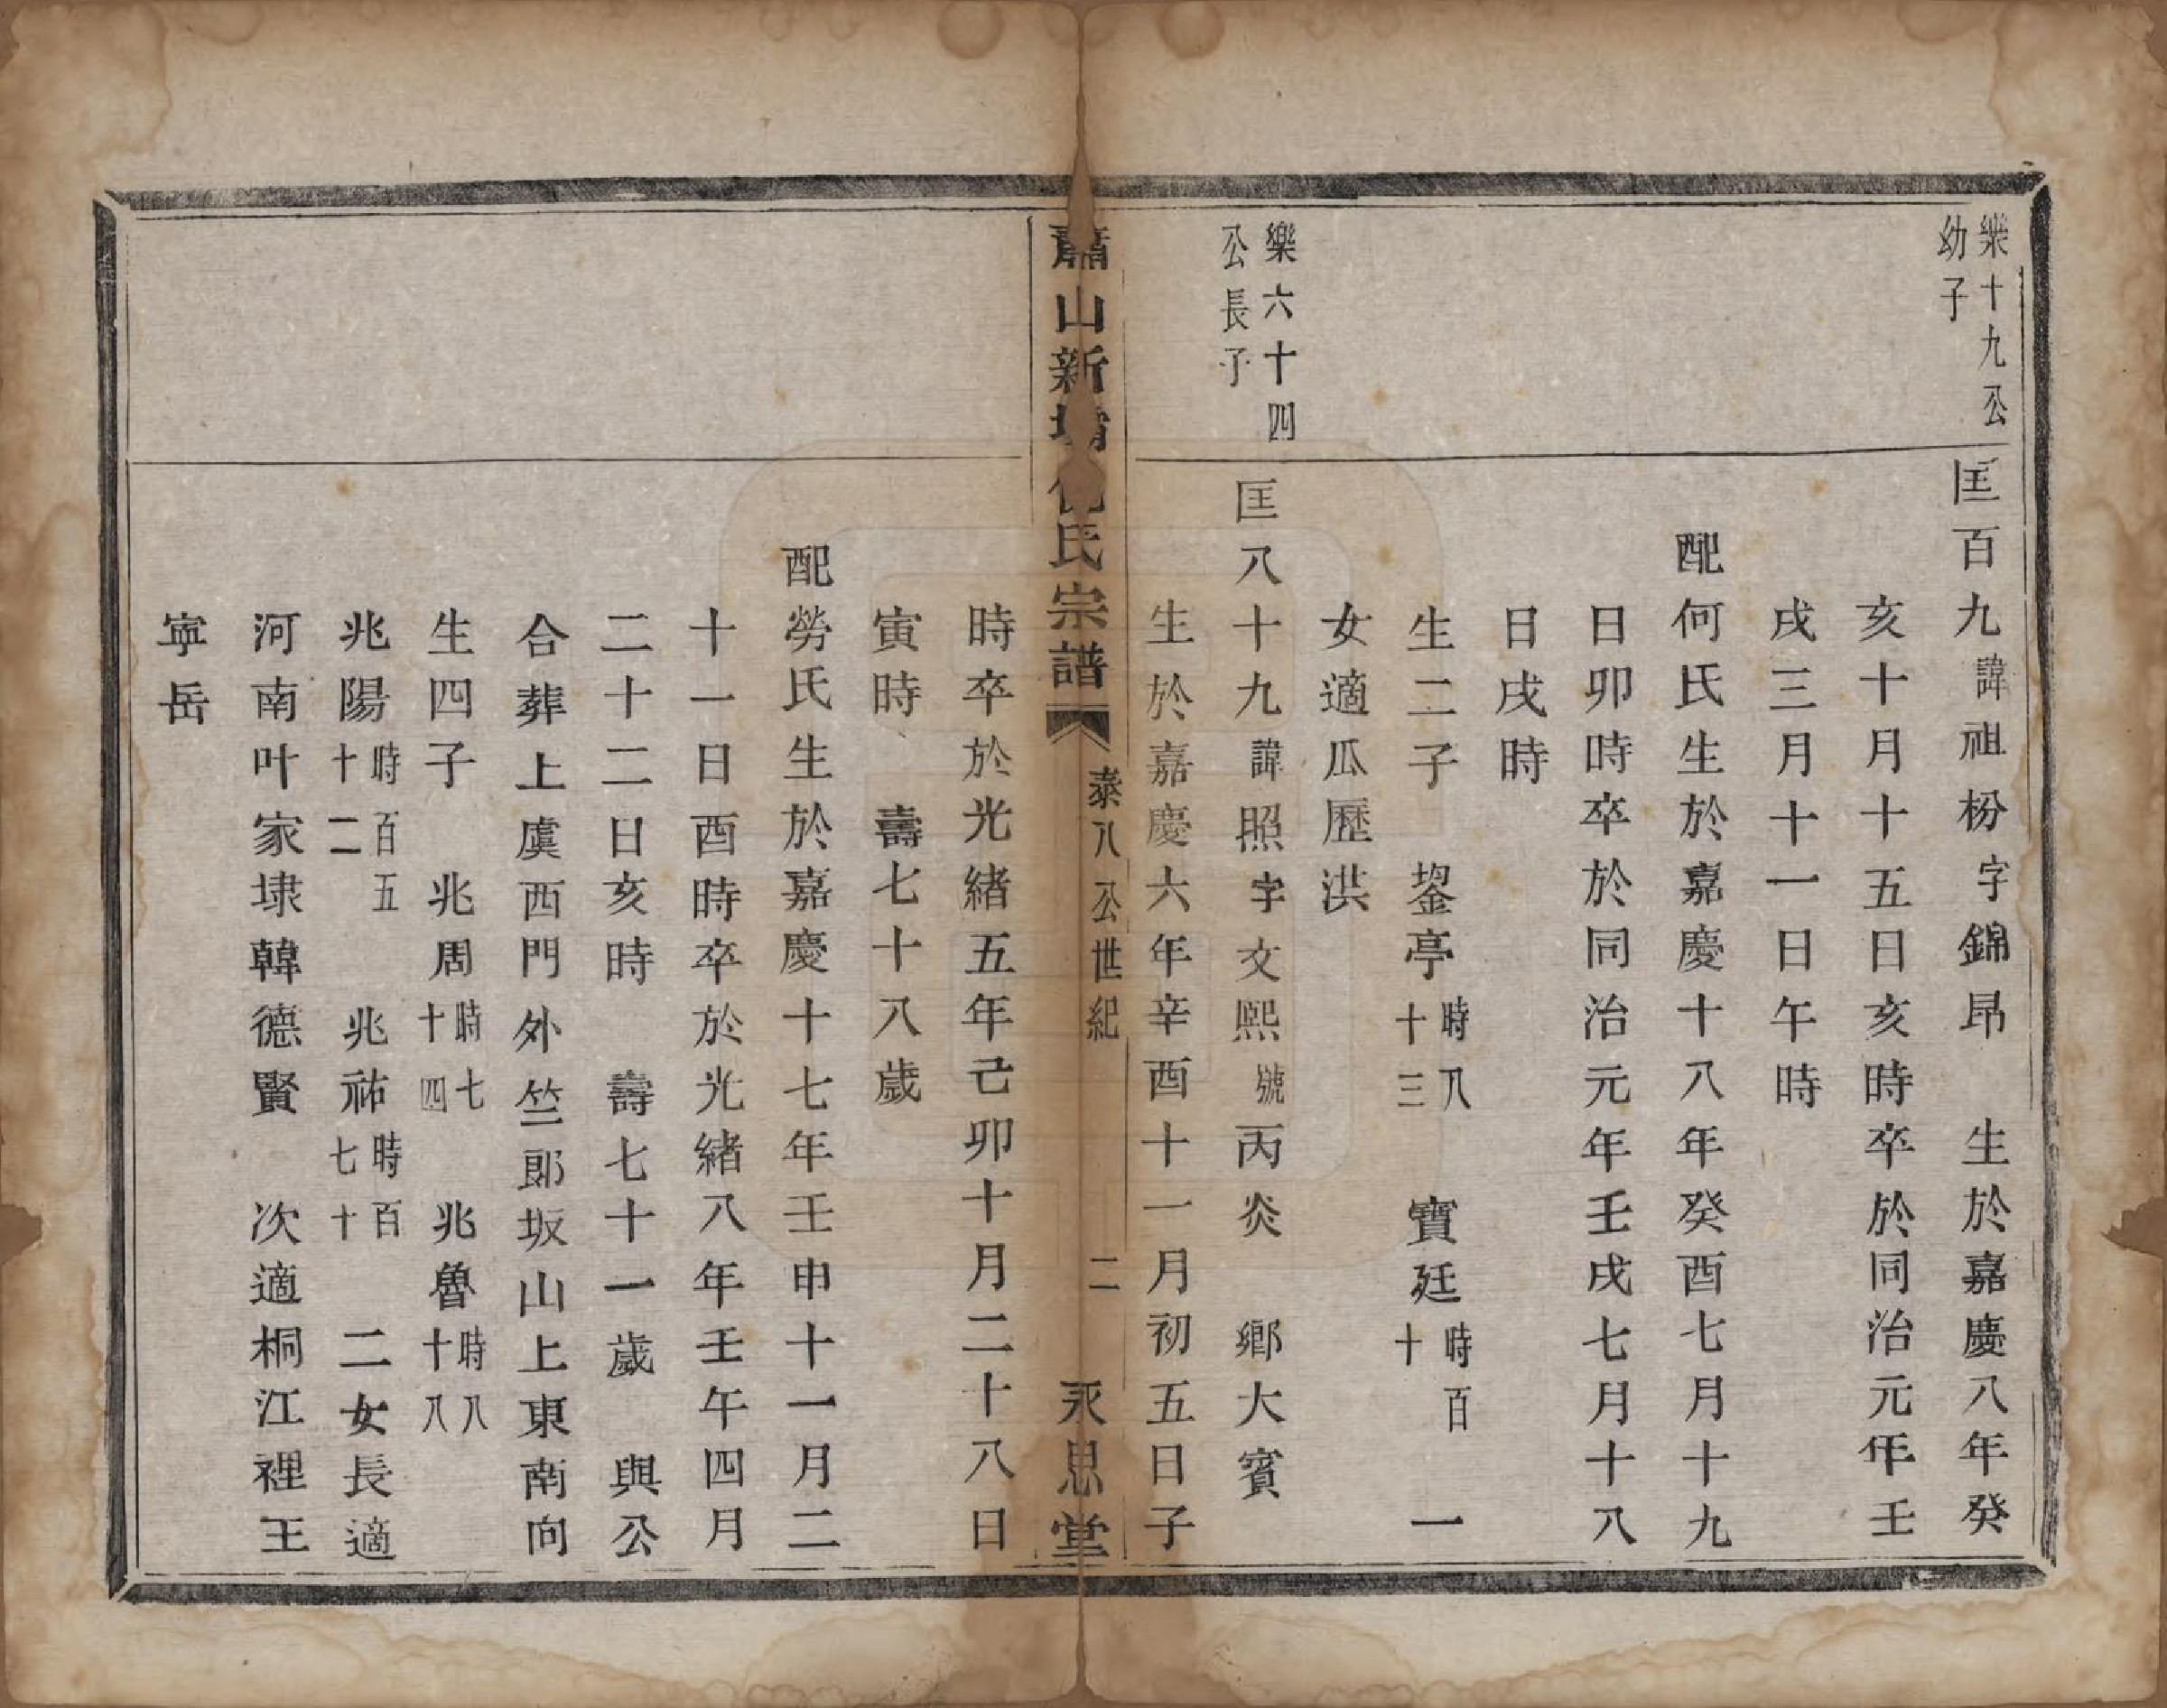 樂十九公
幼子
匡百九諱祖枌字錦昂　生於嘉慶八年癸
亥十月十五日亥時卒於同治元年壬
戌三月十一日午時
配何氏生於嘉慶十八年癸酉七月十九
日卯時卒於同治元年壬戌七月十八
日戌時
生二子　鋆亭時八十三　寶廷時百十　一
女適瓜歷洪
樂六十四
公長子
匡八十九諱照字文熙號丙炎　鄉大賓
生於嘉慶六年辛酉十一月初五日子
蕭山新氏宗譜　泰八公世紀　二　永思堂
時卒於光緒五年己卯十月二十八日
寅時　壽七十八歲
配勞氏生於嘉慶十七年壬申十一月二
十一日酉時卒於光緒八年壬午四月
二十二日亥時　壽七十一歲　與公
合葬上虞西門外竺郎坂山上東南向
生四子　兆周時七十四　兆魯時八十八
兆陽時百五十二　兆祐時百七十　二女長適
河南叶家埭韓德賢　次適桐江裡王
寧岳